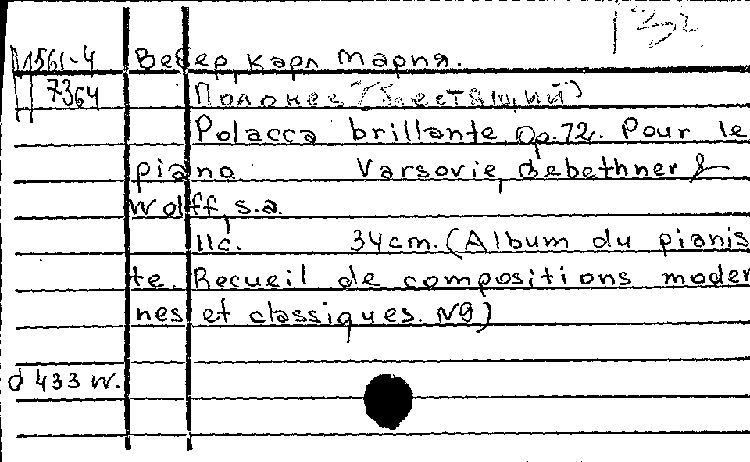 132
М561-4 Вебер, Карл Мария.
7364 Полонез (блестящий)
Polacca brillante Op. 72. Pour le
piano Varsovie, Gebethner &
Wolff, s.a.
11с. 34cm. (Album du pianis
te. Recueil de compositions moder
nes et classiques. N9)
d 433 w.